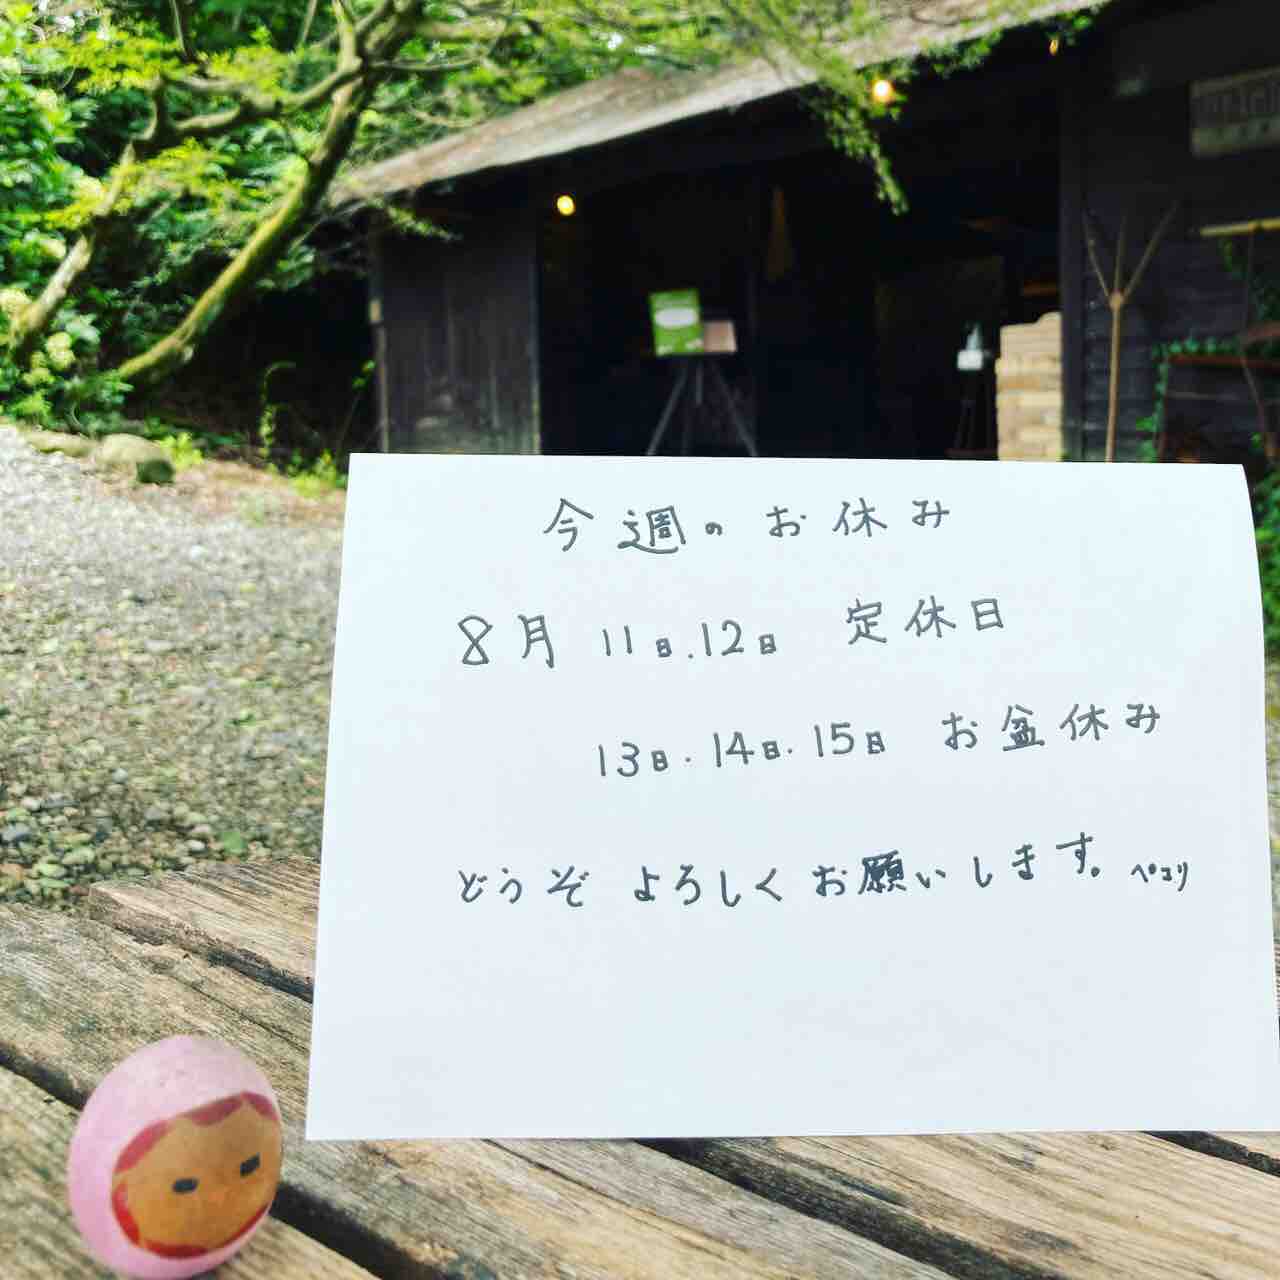 今週のお休み
8月 11日.12日 定休日
13日.14日.15日 お盆休み
どうぞ よろしく お願いします。ペコリ